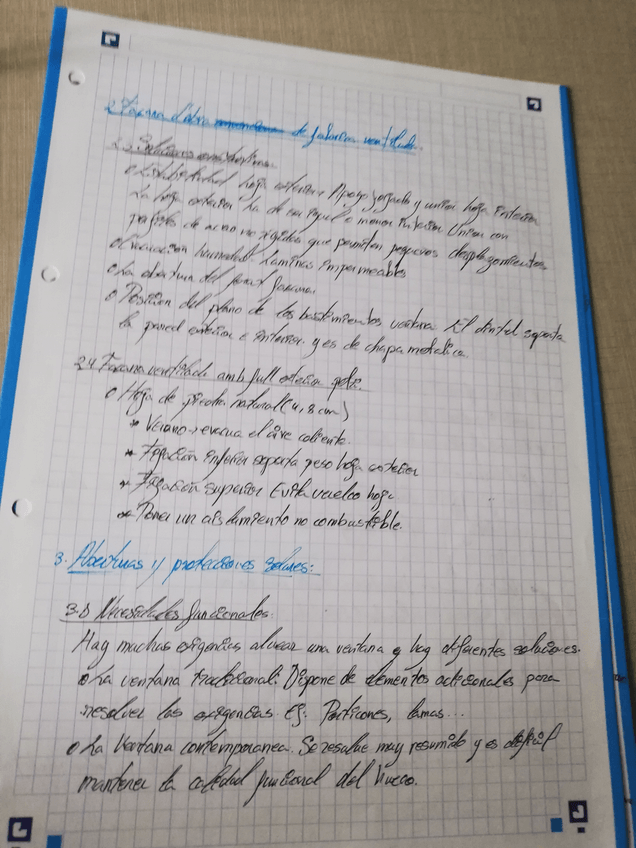 2. Façana d'obra de fabrica ventilada.
2.3 Soluciones constructivas.
o Estabilidad hoja exterior: Apoyo forjado y unión hoja interior
La hoja exterior ha de ser igual o menor interior Union con
perfiles de acero no rigidos que permiten pequeños desplazamientos.
o Evacuacion humedad. Laminas impermeables
o La obertura del pont
o Posicion del plano de los bastimientos ventana. El dintel soporta
la pared exterior e interior y es de chapa metalica.
2.4 Façana ventilada amb full exterior
o Hoja de piedra natural (4, 8 cm)
* Verano → evacua el aire caliente.
* Fijación inferior soporta peso hoja exterior
* Fijación superior Evita vuelco hoja
* Poner un aislamiento no combustible.
3. Aberturas y protecciones solares:
3.1 Necesidades funcionales.
Hay muchas exigencias al crear una ventana y hay diferentes soluciones.
o La ventana tradicional: Dispone de elementos adicionales para
resolver las exigencias. Ej: Porticones, lamas...
o La Ventana contemporanea. Se resuelve muy resumido y es dificil
mantener la calidad funcional del hueco.